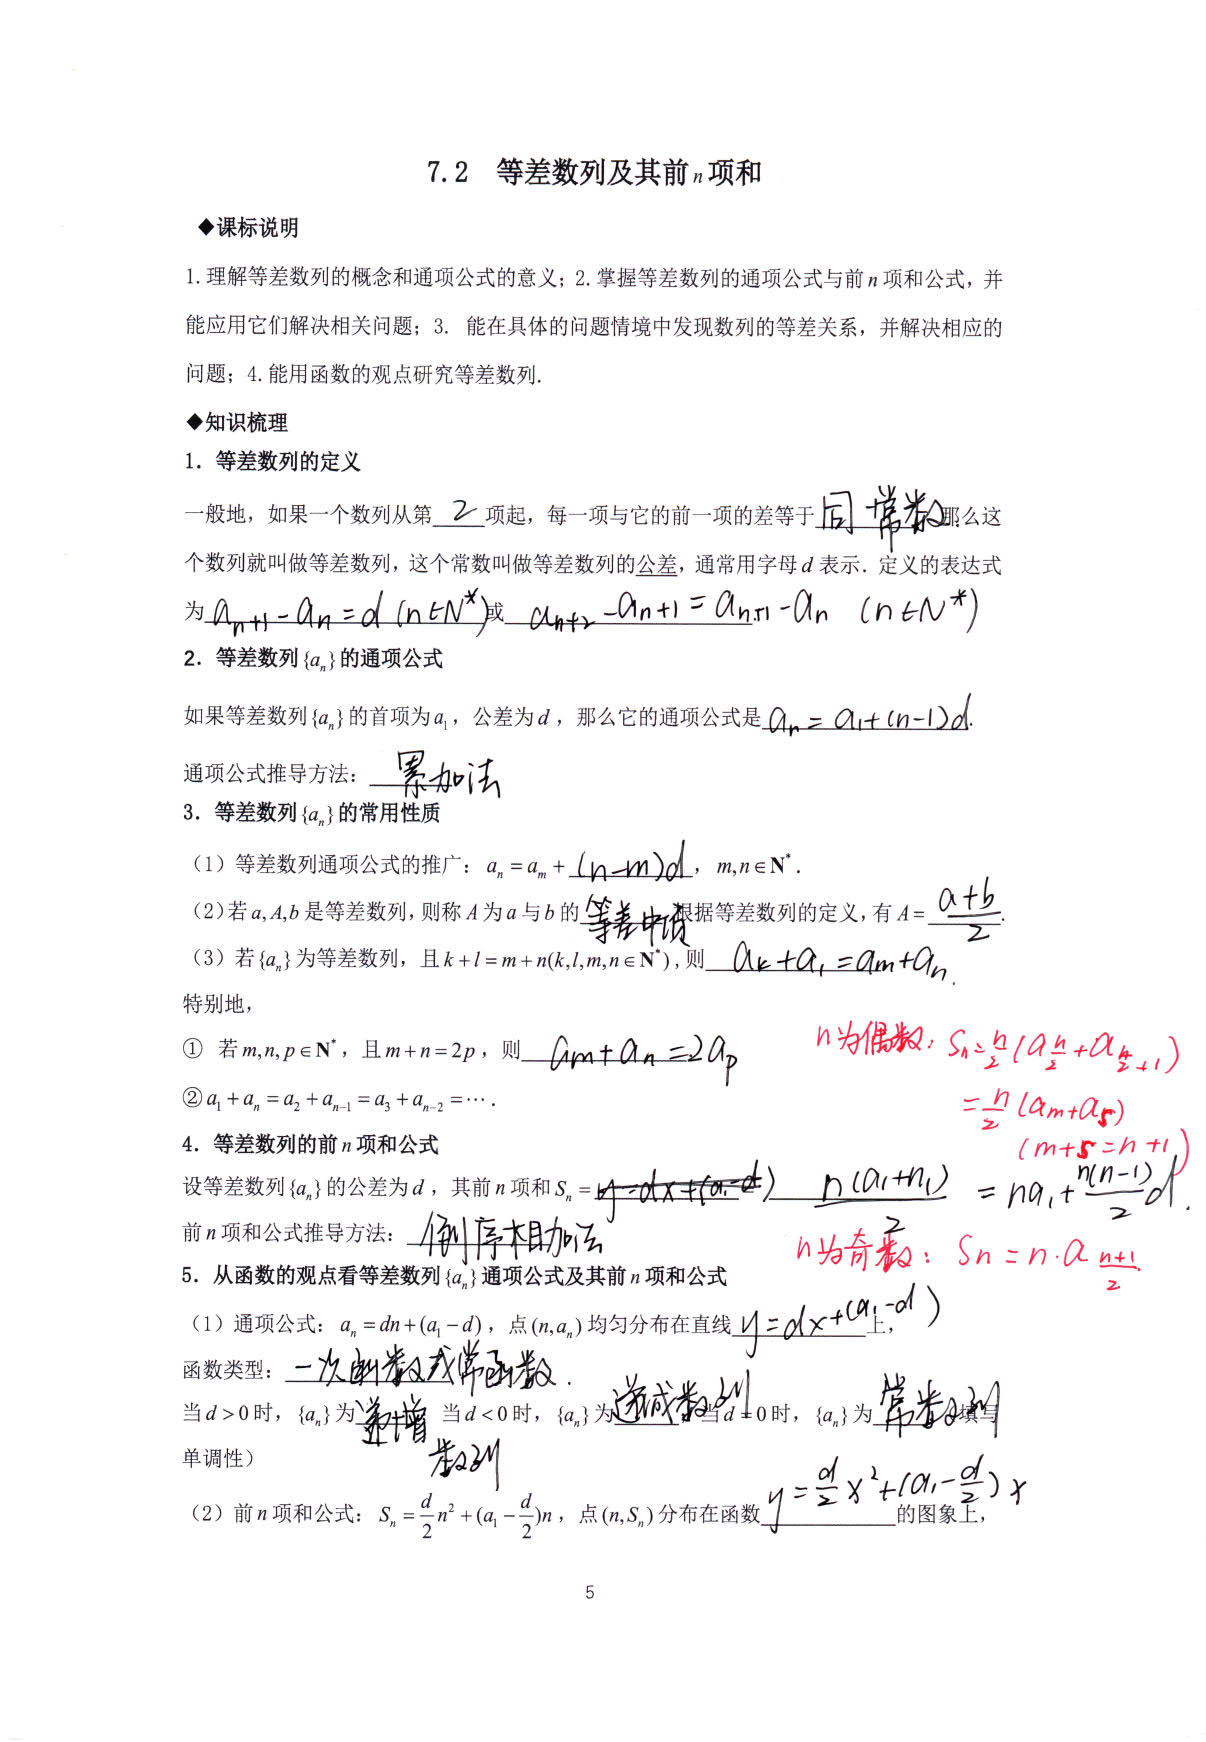 7.2 等差数列及其前n项和
◆课标说明
1.理解等差数列的概念和通项公式的意义；2.掌握等差数列的通项公式与前n项和公式，并
能应用它们解决相关问题；3. 能在具体的问题情境中发现数列的等差关系，并解决相应的
问题；4.能用函数的观点研究等差数列.
◆知识梳理
1．等差数列的定义
一般地，如果一个数列从第 2 项起，每一项与它的前一项的差等于 同一常数 那么这
个数列就叫做等差数列，这个常数叫做等差数列的公差，通常用字母d表示．定义的表达式
为 aₙ₊₁-aₙ=d (n∈N*) 或 aₙ₊₂-aₙ₊₁=aₙ₊₁-aₙ (n∈N*)
2．等差数列{aₙ}的通项公式
如果等差数列{aₙ}的首项为a₁，公差为d，那么它的通项公式是 aₙ=a₁+(n-1)d.
通项公式推导方法： 累加法
3．等差数列{aₙ}的常用性质
（1）等差数列通项公式的推广：aₙ=aₘ+ (n-m)d ，m,n∈N*.
（2）若a,A,b是等差数列，则称A为a与b的 等差中项 根据等差数列的定义，有A= (a+b)/2 .
（3）若{aₙ}为等差数列，且k+l=m+n(k,l,m,n∈N*)，则 aₖ+aₗ=aₘ+aₙ.
特别地，
① 若m,n,p∈N*，且m+n=2p，则 aₘ+aₙ=2aₚ
n为偶数：Sₙ=n/2(a_{n/2}+a_{n/2+1})
②a₁+aₙ=a₂+aₙ₋₁=a₃+aₙ₋₂=⋯.
=n/2(aₘ+a₅)
(m+5=n+1)
4．等差数列的前n项和公式
设等差数列{aₙ}的公差为d，其前n项和Sₙ= n(a₁+n₁)/2 =na₁+n(n-1)/2 d.
前n项和公式推导方法： 倒序相加法
n为奇数：Sₙ=n·a_{(n+1)/2}
5．从函数的观点看等差数列{aₙ}通项公式及其前n项和公式
（1）通项公式：aₙ=dn+(a₁-d)，点(n,aₙ)均匀分布在直线 y=dx+(a₁-d) 上，
函数类型： 一次函数或常函数．
当d>0时，{aₙ}为 递增数列 当d<0时，{aₙ}为 递减数列 当d=0时，{aₙ}为 常数列 填写
单调性）
（2）前n项和公式：Sₙ=d/2 n²+(a₁-d/2)n，点(n,Sₙ)分布在函数 y=d/2 x²+(a₁-d/2)x 的图象上，
5